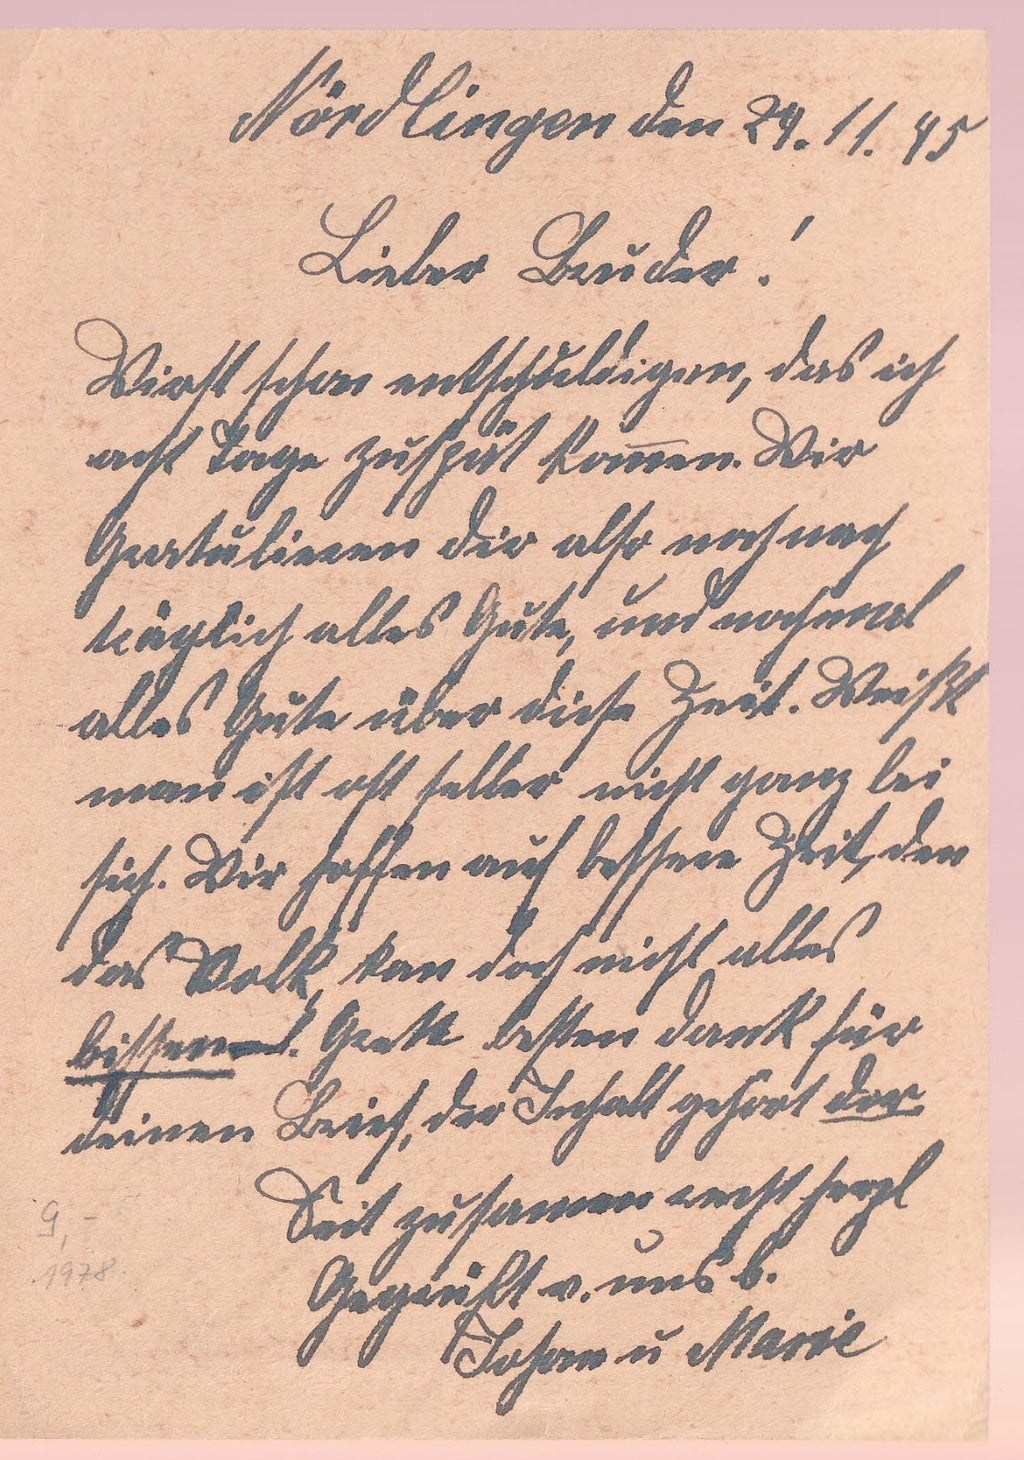 Nördlingen den 29. 11. 45
Lieber Bruder!
Wirst schon entschuldigen, das ich
acht Tage zuspät kom̅en. Wir
Gratulieren dir also noch nach
träglich alles Gute, und nochmal
alles Gute über diese Zeit. Weißt
man ist oft selber nicht ganz bei
sich. Wir hoffen auf bessere Zeit, den
das Volk, kan doch nicht alles
bissen. besten dank für
deinen Brief, der Inhalt gehört dor
Seit zusamen recht herzl
Gegrüßt v. uns b.
Johan u Marie
9,-
1978